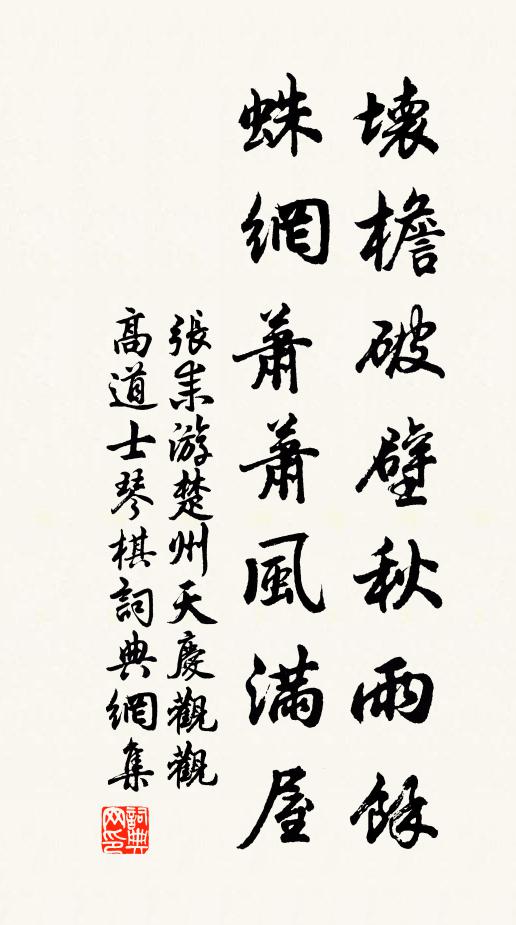 壞檐破壁秋雨餘
蛛網蕭蕭風滿屋
張耒游楚州天慶觀觀
高道士琴棋詞典網集
詞典網印